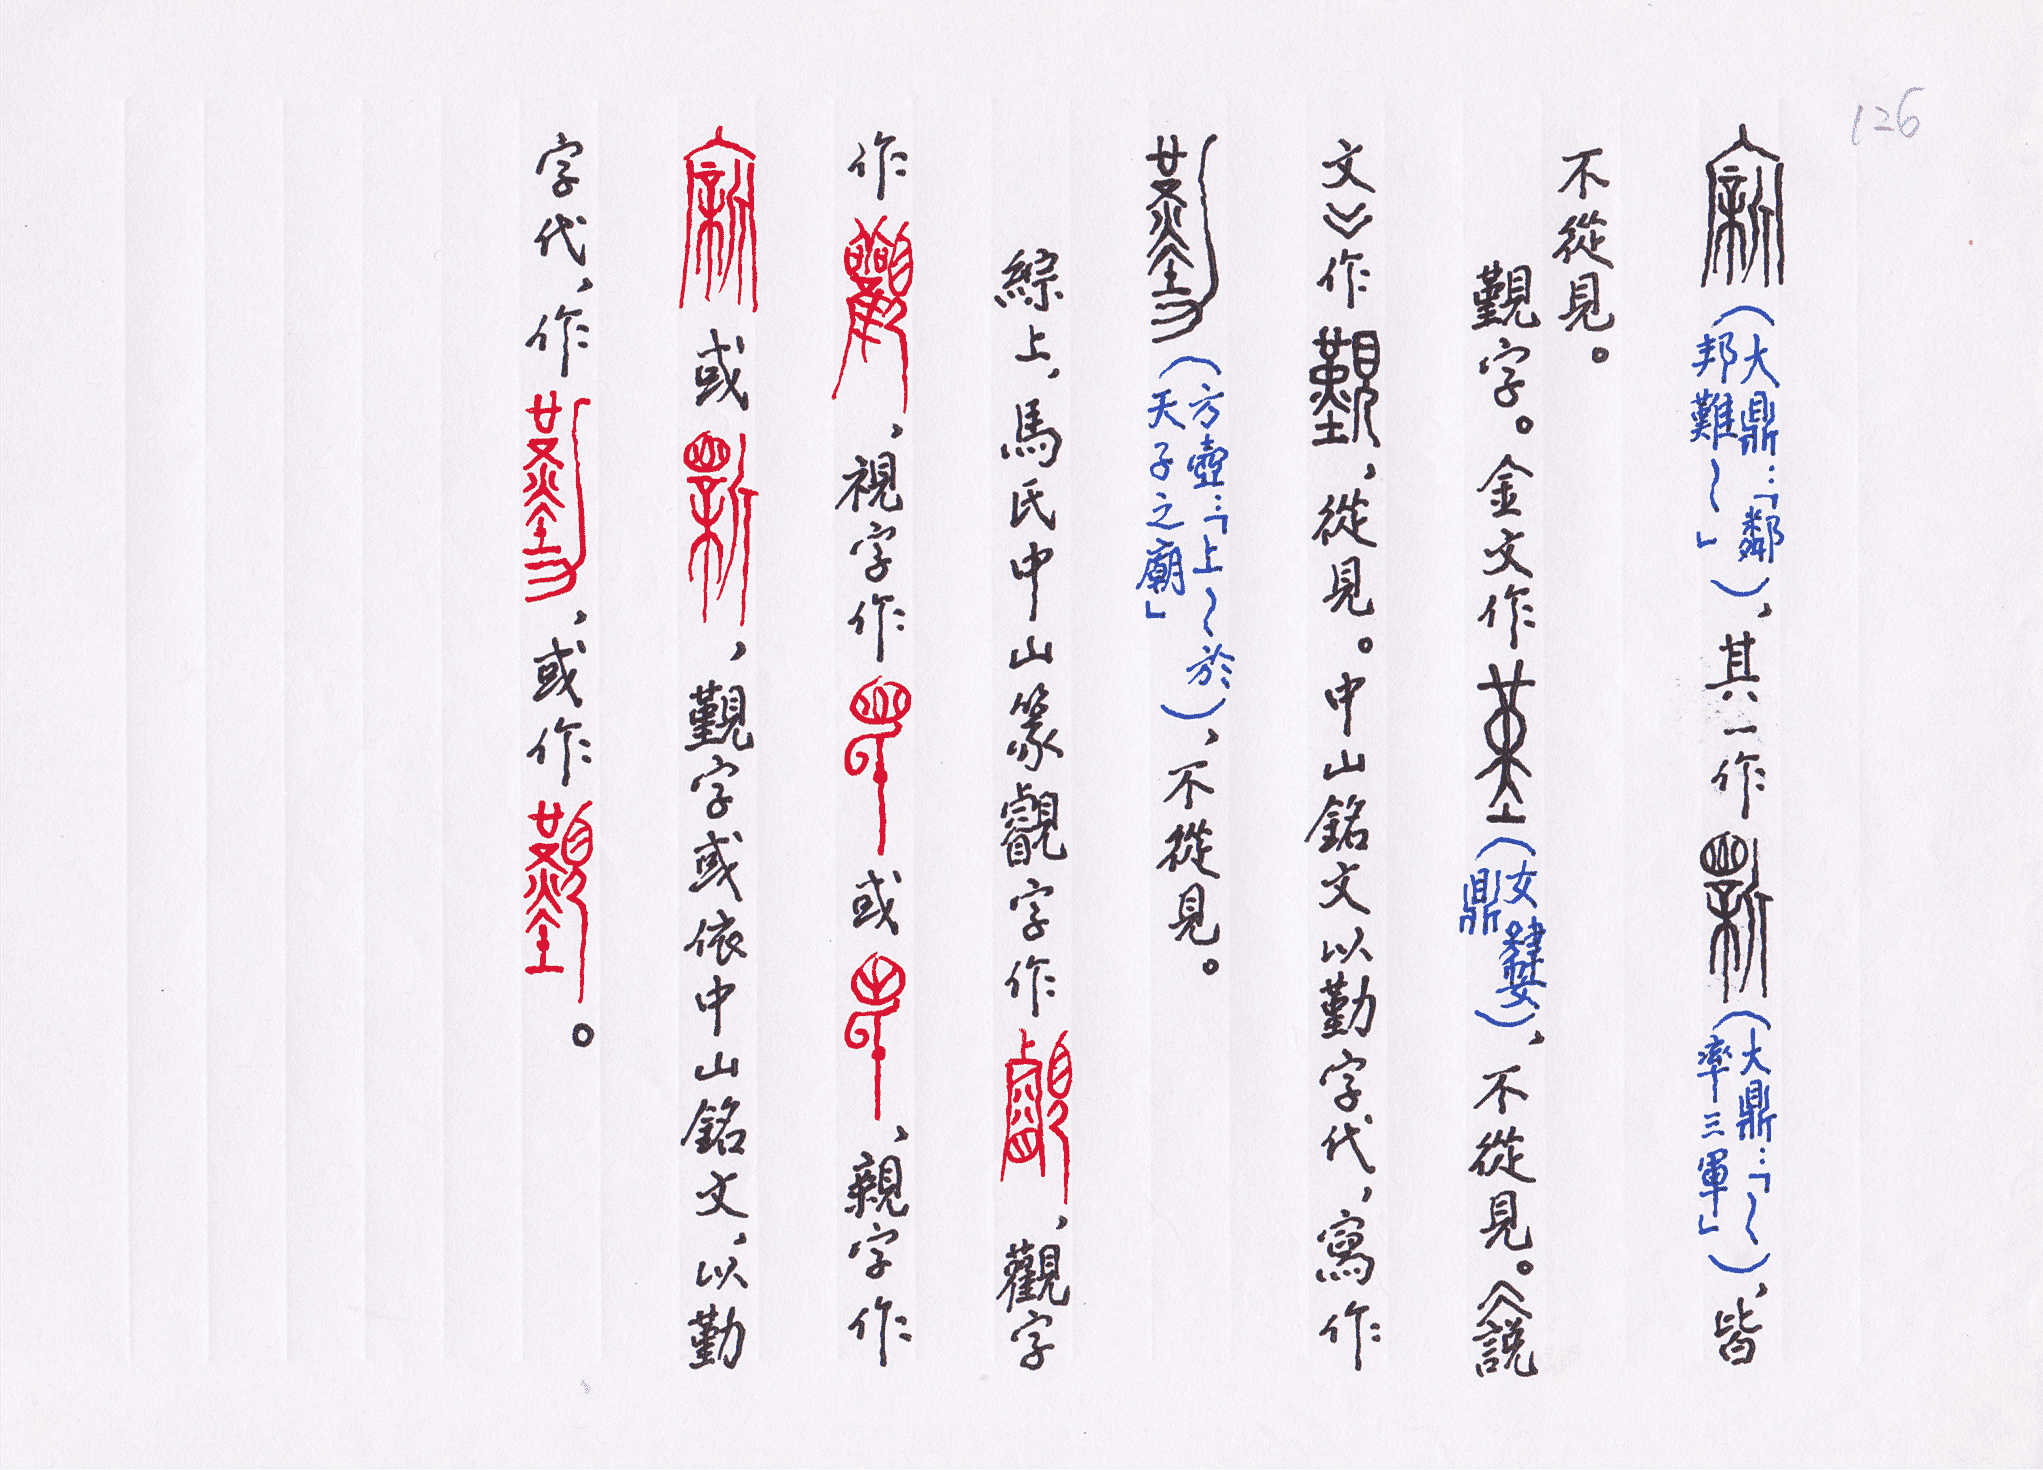 126
(大鼎：「鄰邦難～」)，其一作(大鼎：「～率三軍」)，皆
不從見。
覲字。金文作(女嬼鼎)，不從見。《說
文》作覲，從見。中山銘文以勤字代，寫作
(方壺：「上～於天子之廟」)，不從見。
綜上，馬氏中山篆覰字作，觀字
作，視字作或，親字作
或，覲字或依中山銘文，以勤
字代，作，或作。